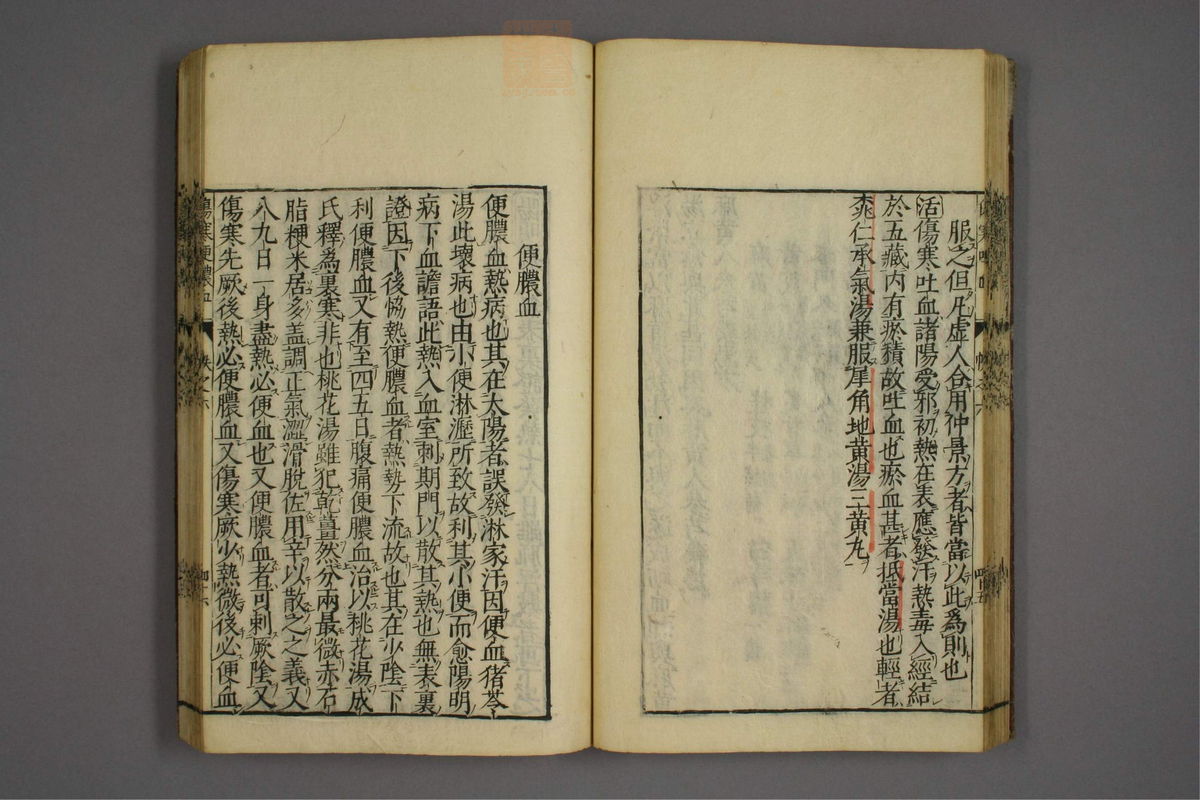 服之但凡虛人合用仲景方者皆當以此爲則也
活傷寒吐血諸陽受邪初熱在表應發汗熱毒入經結
於五藏内有瘀積故吐血也瘀血甚者抵當湯也輕者
桃仁承氣湯兼服犀角地黃湯三黃丸
便膿血
便膿血熱病也其在太陽者誤發淋家汗因便血猪苓
湯此壞病也由小便淋瀝所致故利其小便而愈陽明
病下血譫語此熱入血室刺期門以散其熱也無表裏
證因下後協熱便膿血者熱勢下流故也其在少陰下
利便膿血又有至四五日腹痛便膿血治以桃花湯成
氏釋爲裏寒非也桃花湯雖犯乾薑然分兩最微赤石
脂梗米居多盖調正氣澀滑脫佐用辛以散之之義又
八九日一身盡熱必便血也又便膿血者可刺厥陰又
傷寒先厥後熱必便膿血又傷寒厥少熱微後必便血